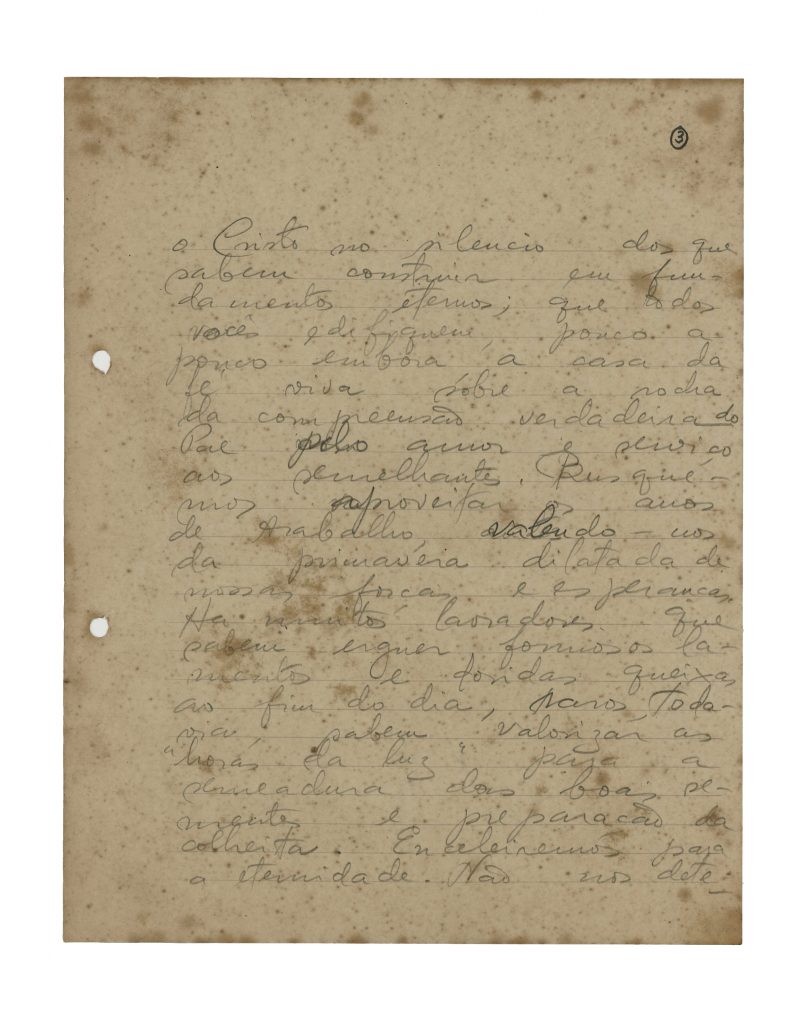 3
o Cristo no silencio dos que
sabem construir em fun-
damentos eternos; que todos
vocês edifiquem, pouco a-
pouco embora, a casa da
fé viva sôbre a rocha
da compreensão verdadeira do
Pae pelo amor e serviço
aos semelhantes. Busque-
mos aproveitar os anos
de trabalho, valendo-nos
da primavera dilatada de
nossas forças e esperanças.
Ha muitos lavradores que
sabem erguer formosos la-
mentos e doridas queixas
ao fim do dia, raros, toda-
via, sabem valorizar as
"horas da luz" para a
semeadura das boas se-
mentes e preparação da
colheita. Enceleiremos para
a eternidade. Não nos dete-